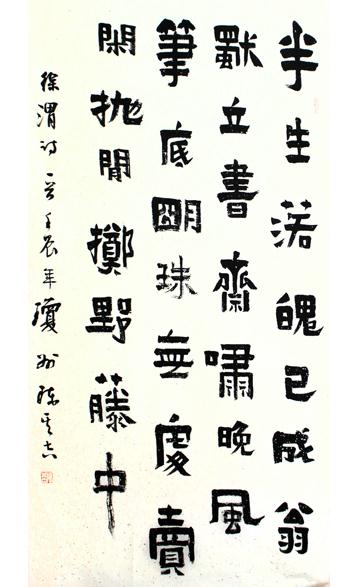 半生落魄已成翁
獨立書齋嘯晚風
筆底明珠無處賣
閑抛閒擲野藤中
徐渭诗一首壬辰年瓊州